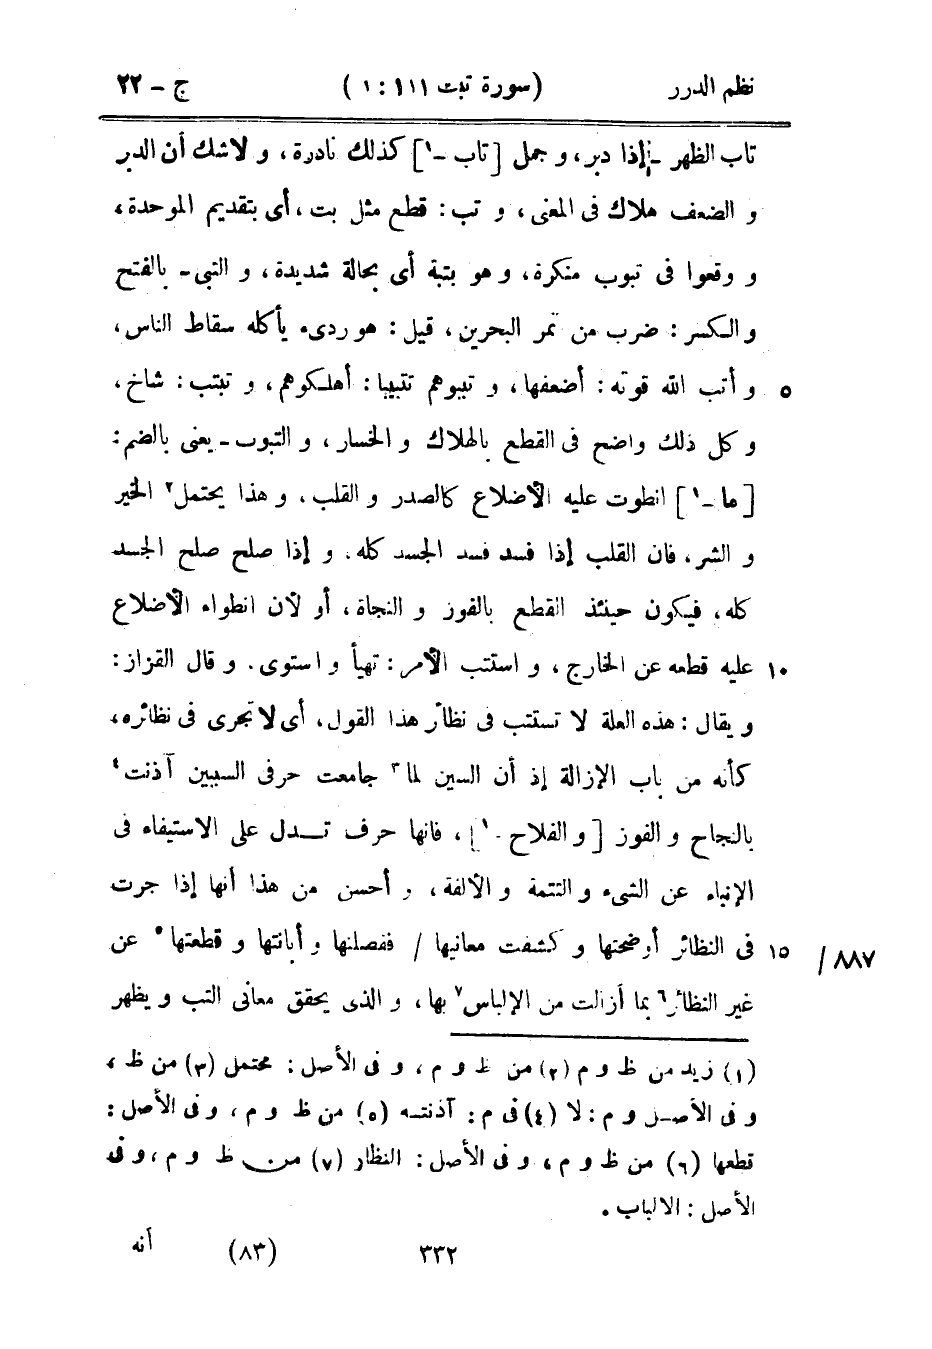 نظم الدرر (سورة تبت ١١١ : ١) ج - ٢٢
تاب الظهر - إذا دبر، و جمل [تاب -١] كذلك نادرة، و لاشك أن الدبر
و الضعف هلاك فى المعنى، و تب : قطع مثل بت، أى بتقديم الموحدة،
و وقعوا فى تبوب منكرة، و هو بتبة أى بحالة شديدة، و التبى - بالفتح
و الكسر : ضرب من تمر البحرين، قيل : هو ردىء يأكله سقاط الناس،
٥ و أتب الله قوته : أضعفها، و تببوهم تتبيبا : أهلكوهم، و تبتب : شاخ،
و كل ذلك واضح فى القطع بالهلاك و الخسار، و التبوب - يعنى بالضم :
[ما -١] انطوت عليه الأضلاع كالصدر و القلب، و هذا يحتمل٢ الخير
و الشر، فان القلب إذا فسد فسد الجسد كله. و إذا صلح صلح الجسد
كله، فيكون حينئذ القطع بالفوز و النجاة، أو لأن انطواء الأضلاع
١٠ عليه قطعه عن الخارج، و استتب الأمر : تهيأ و استوى. و قال القزاز :
و يقال : هذه العلة لا تستتب فى نظائر هذا القول، أى لا تجرى فى نظائره،
كأنه من باب الإزالة إذ أن السين لما٣ جامعت حرفى السببين آذنت٤
بالنجاح و الفوز [و الفلاح -١]، فانها حرف تدل على الاستيفاء فى
الإنباء عن الشىء و التتمة و الألفة، و أحسن من هذا أنها إذا جرت
١٥ فى النظائر أوضحتها و كشفت معانيها / ففصلتها و أبانتها و قطعتها٥ عن / ٨٨٧
غير النظائر٦ بما أزالت من الإلباس٧ بها، و الذى يحقق معانى التب و يظهر
(١) زيد من ظ و م (٢) من ظ و م، و فى الأصل : محتمل (٣) من ظ،
و فى الأصل و م : لا (٤) فى م : آذنته (٥) من ظ و م، و فى الأصل :
قطعها (٦) من ظ و م، و فى الأصل : النظار (٧) من ظ و م، و فى
الأصل : الالباب.
٣٣٢ (٨٣) أنه